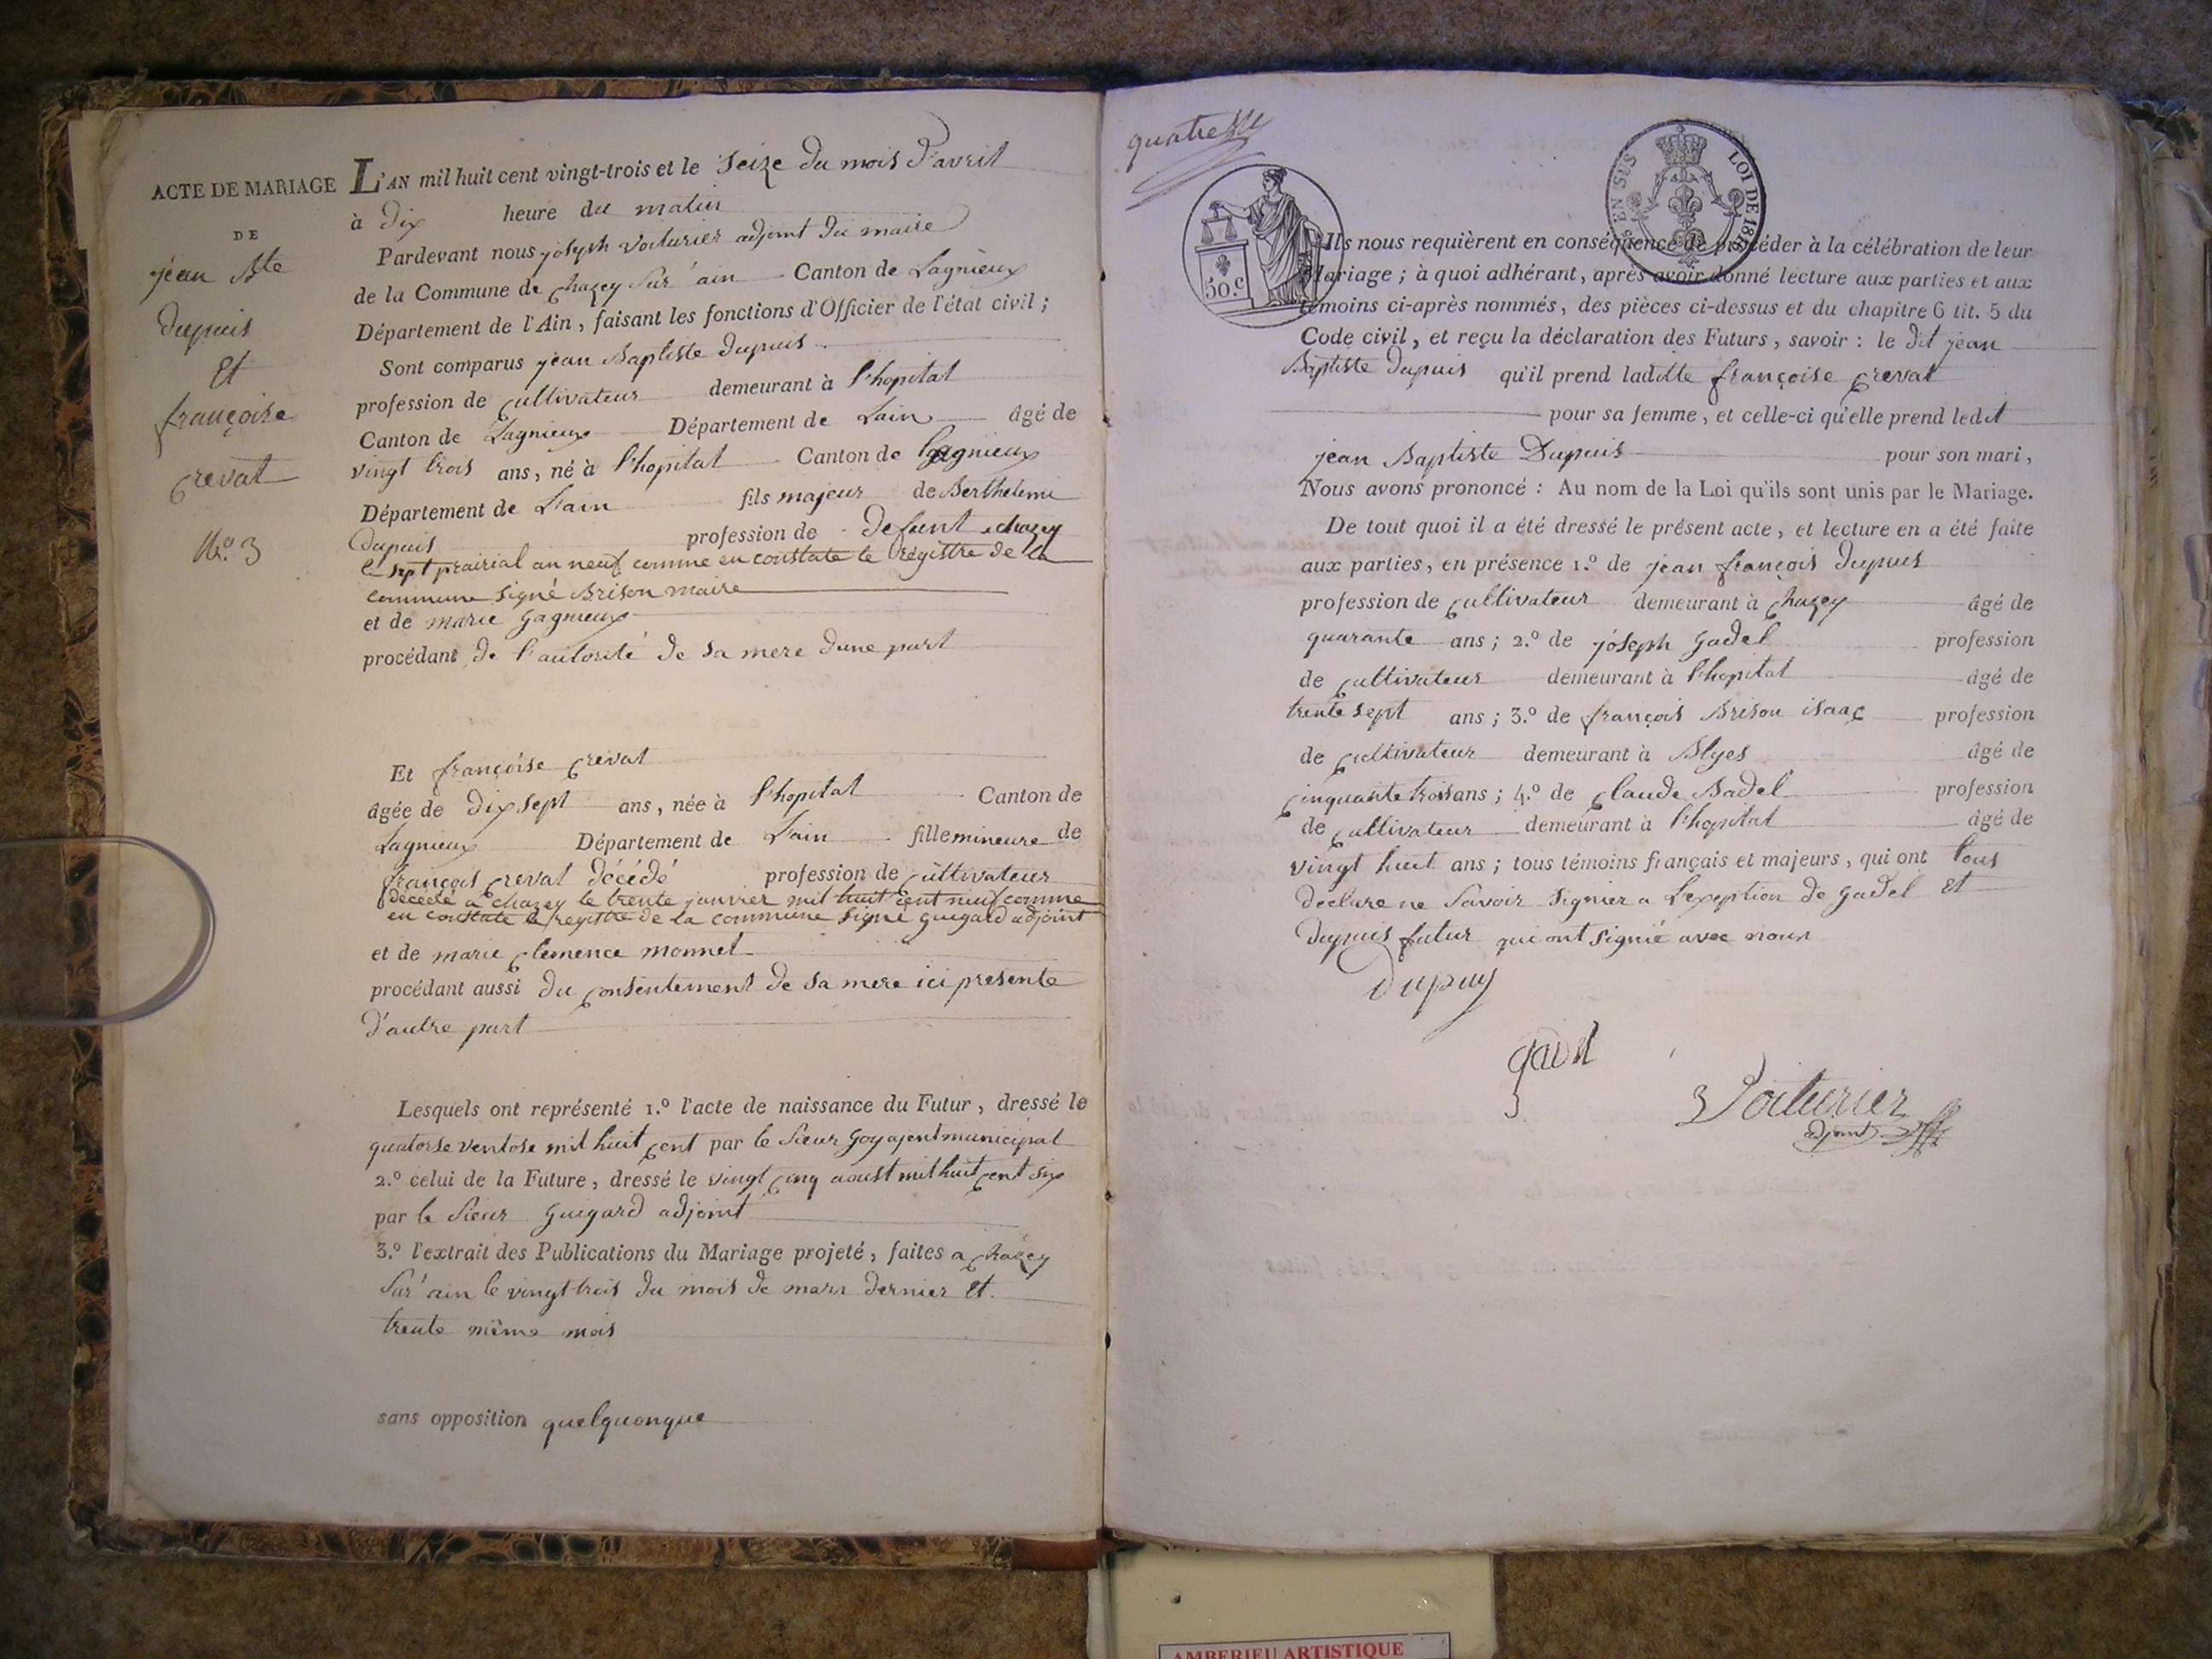 ACTE DE MARIAGE
DE
jean Bte
dupuis
Et
françoise
crevat
No. 3
L'AN mil huit cent vingt-trois et le seize du mois d'avril
à dix heure du matin
Pardevant nous joseph Voiturier adjoint du maire
de la Commune de chazey sur ain Canton de Lagnieux
Département de l'Ain, faisant les fonctions d'Officier de l'état civil;
Sont comparus jean Baptiste dupuis
profession de cultivateur demeurant à l'hopital
Canton de Lagnieux Département de Lain âgé de
vingt trois ans, né à l'hopital Canton de lagnieux
Département de Lain fils majeur de Berthelemi
dupuis profession de defunt a chazey
le sept prairial an neuf comme en constate le registre de la
commune signé Brison maire
et de marie gagnieux
procédant de l'autorité de sa mere dune part
Et françoise crevat
âgée de dix sept ans, née à l'hopital Canton de
Lagnieux Département de Lain fille mineure de
françois crevat décédé profession de cultivateur
décédé a chazey le trente janvier mil huit cent neuf comme
en constate le registre de la commune signé guigard adjoint
et de marie clemence monnet
procédant aussi du consentement de sa mere ici presente
d'autre part
Lesquels ont représenté 1.º l'acte de naissance du Futur, dressé le
quatorse ventose mil huit cent par le sieur Goy ajent municipal
2.º celui de la Future, dressé le vingt cinq aoust mil huit cent six
par le sieur guigard adjoint
3.º l'extrait des Publications du Mariage projeté, faites a chazey
sur ain le vingt trois du mois de mars dernier et
trente même mois
sans opposition quelquonque
quatre
50.c
EN SUS LOI DE 1816
Ils nous requièrent en conséquence de procéder à la célébration de leur
Mariage; à quoi adhérant, après avoir donné lecture aux parties et aux
témoins ci-après nommés, des pièces ci-dessus et du chapitre 6 tit. 5 du
Code civil, et reçu la déclaration des Futurs, savoir: le dit jean
Baptiste dupuis qu'il prend laditte françoise crevat
pour sa femme, et celle-ci qu'elle prend ledit
jean Baptiste Dupuis pour son mari,
Nous avons prononcé: Au nom de la Loi qu'ils sont unis par le Mariage.
De tout quoi il a été dressé le présent acte, et lecture en a été faite
aux parties, en présence 1.º de jean françois dupuis
profession de cultivateur demeurant à chazey âgé de
quarante ans; 2.º de joseph gadel profession
de cultivateur demeurant à l'hopital âgé de
trente sept ans; 3.º de françois Brison isaac profession
de cultivateur demeurant à Blyes âgé de
cinquante trois ans; 4.º de claude Badel profession
de cultivateur demeurant à l'hopital âgé de
vingt huit ans; tous témoins français et majeurs, qui ont tous
declare ne savoir signier a lexeption de gadel et
dupuis futur qui ont signié avec nous
dupuy
gadel
Voiturier
adjoint
AMBERIEU ARTISTIQUE